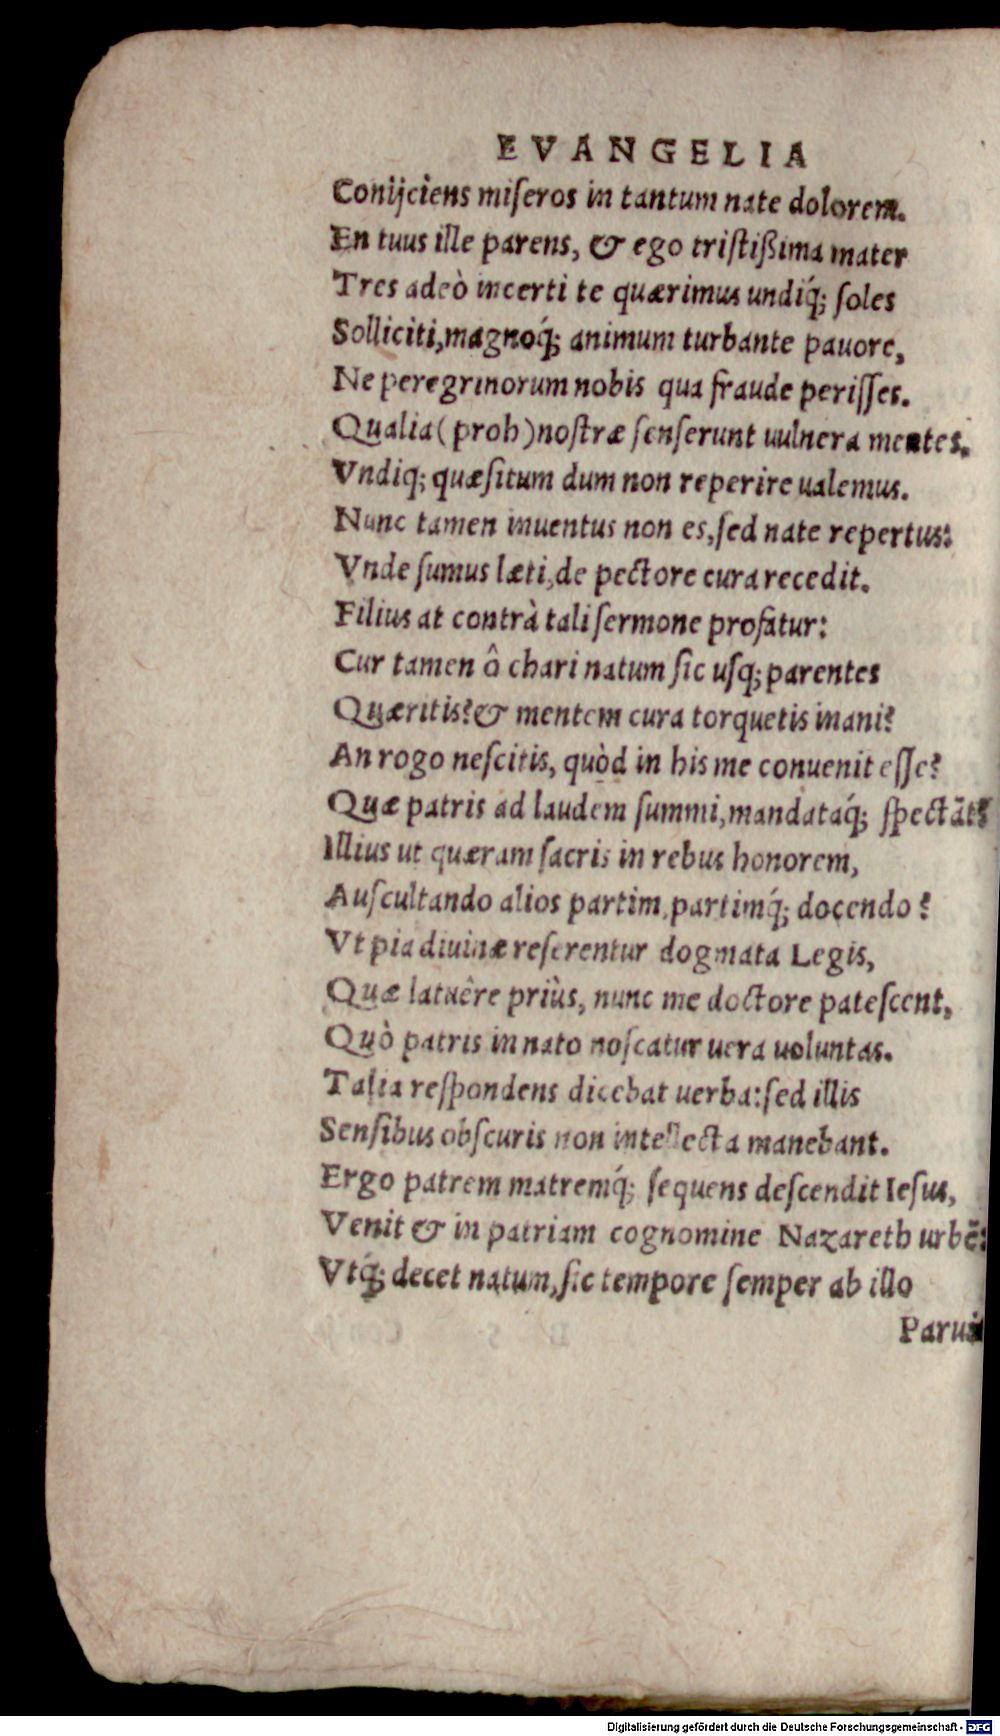 EVANGELIA
Conijciens miſeros in tantum nate dolorem.
En tuus ille parens, & ego triſtißima mater
Tres adeò incerti te quærimus undiq́; ſoles
Solliciti, magnoq́; animum turbante pauore,
Ne peregrinorum nobis qua fraude periſſes.
Qualia (proh) noſtræ ſenſerunt uulnera mentes.
Vndiq; quæſitum dum non reperire ualemus.
Nunc tamen inuentus non es, ſed nate repertus:
Vnde ſumus læti, de pectore cura recedit.
Filius at contrà tali ſermone profatur:
Cur tamen ô chari natum ſic uſq; parentes
Quæritis? & mentem cura torquetis inani?
An rogo neſcitis, quòd in his me conuenit eſſe?
Quæ patris ad laudem ſummi, mandataq́; ſpectāt?
Illius ut quæram ſacris in rebus honorem,
Auſcultando alios partim, partimq́; docendo?
Vt pia diuinæ reſerentur dogmata Legis,
Quæ latuêre priùs, nunc me doctore pateſcent,
Quò patris in nato noſcatur uera uoluntas.
Talia reſpondens dicebat uerba: ſed illis
Senſibus obſcuris non intellecta manebant.
Ergo patrem matremq́; ſequens deſcendit Ieſus,
Venit & in patriam cognomine Nazareth urbē:
Vtq́; decet natum, ſic tempore ſemper ab illo
Paruit
Digitalisierung gefördert durch die Deutsche Forschungsgemeinschaft - DFG